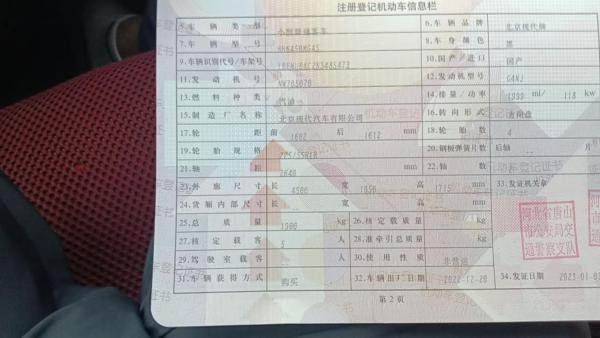 注册登记机动车信息栏
5.车辆类型 小型普通客车 6.车辆品牌 北京现代牌
7.车辆型号 8.车身颜色 黑
9.车辆识别代号/车架号 10.国产/进口 国产
11.发动机号 12.发动机型号 G4NJ
13.燃料种类 汽油 14.排量/功率 1999 ml/ 118 kw
15.制造厂名称 北京现代汽车有限公司 16.转向形式 方向盘
17.轮距 前 1602 后 1612 mm 18.轮胎数 4
19.轮胎规格 225/55R18 20.钢板弹簧片数 后轴 片
21.轴距 2640 mm 22.轴数
23.外廓尺寸 长 宽 高 1715 mm 33.发证机关章
24.货厢内部尺寸 长 宽 高 mm
25.总质量 kg 26.核定载质量 kg
27.核定载客 5 人 28.准牵引总质量 kg
29.驾驶室载客 人 30.使用性质 非营运
31.车辆获得方式 购买 32.车辆出厂日期 2022-12-20 34.发证日期 2023-01-0
河北省唐山
市公安局交
通警察支队
第2页